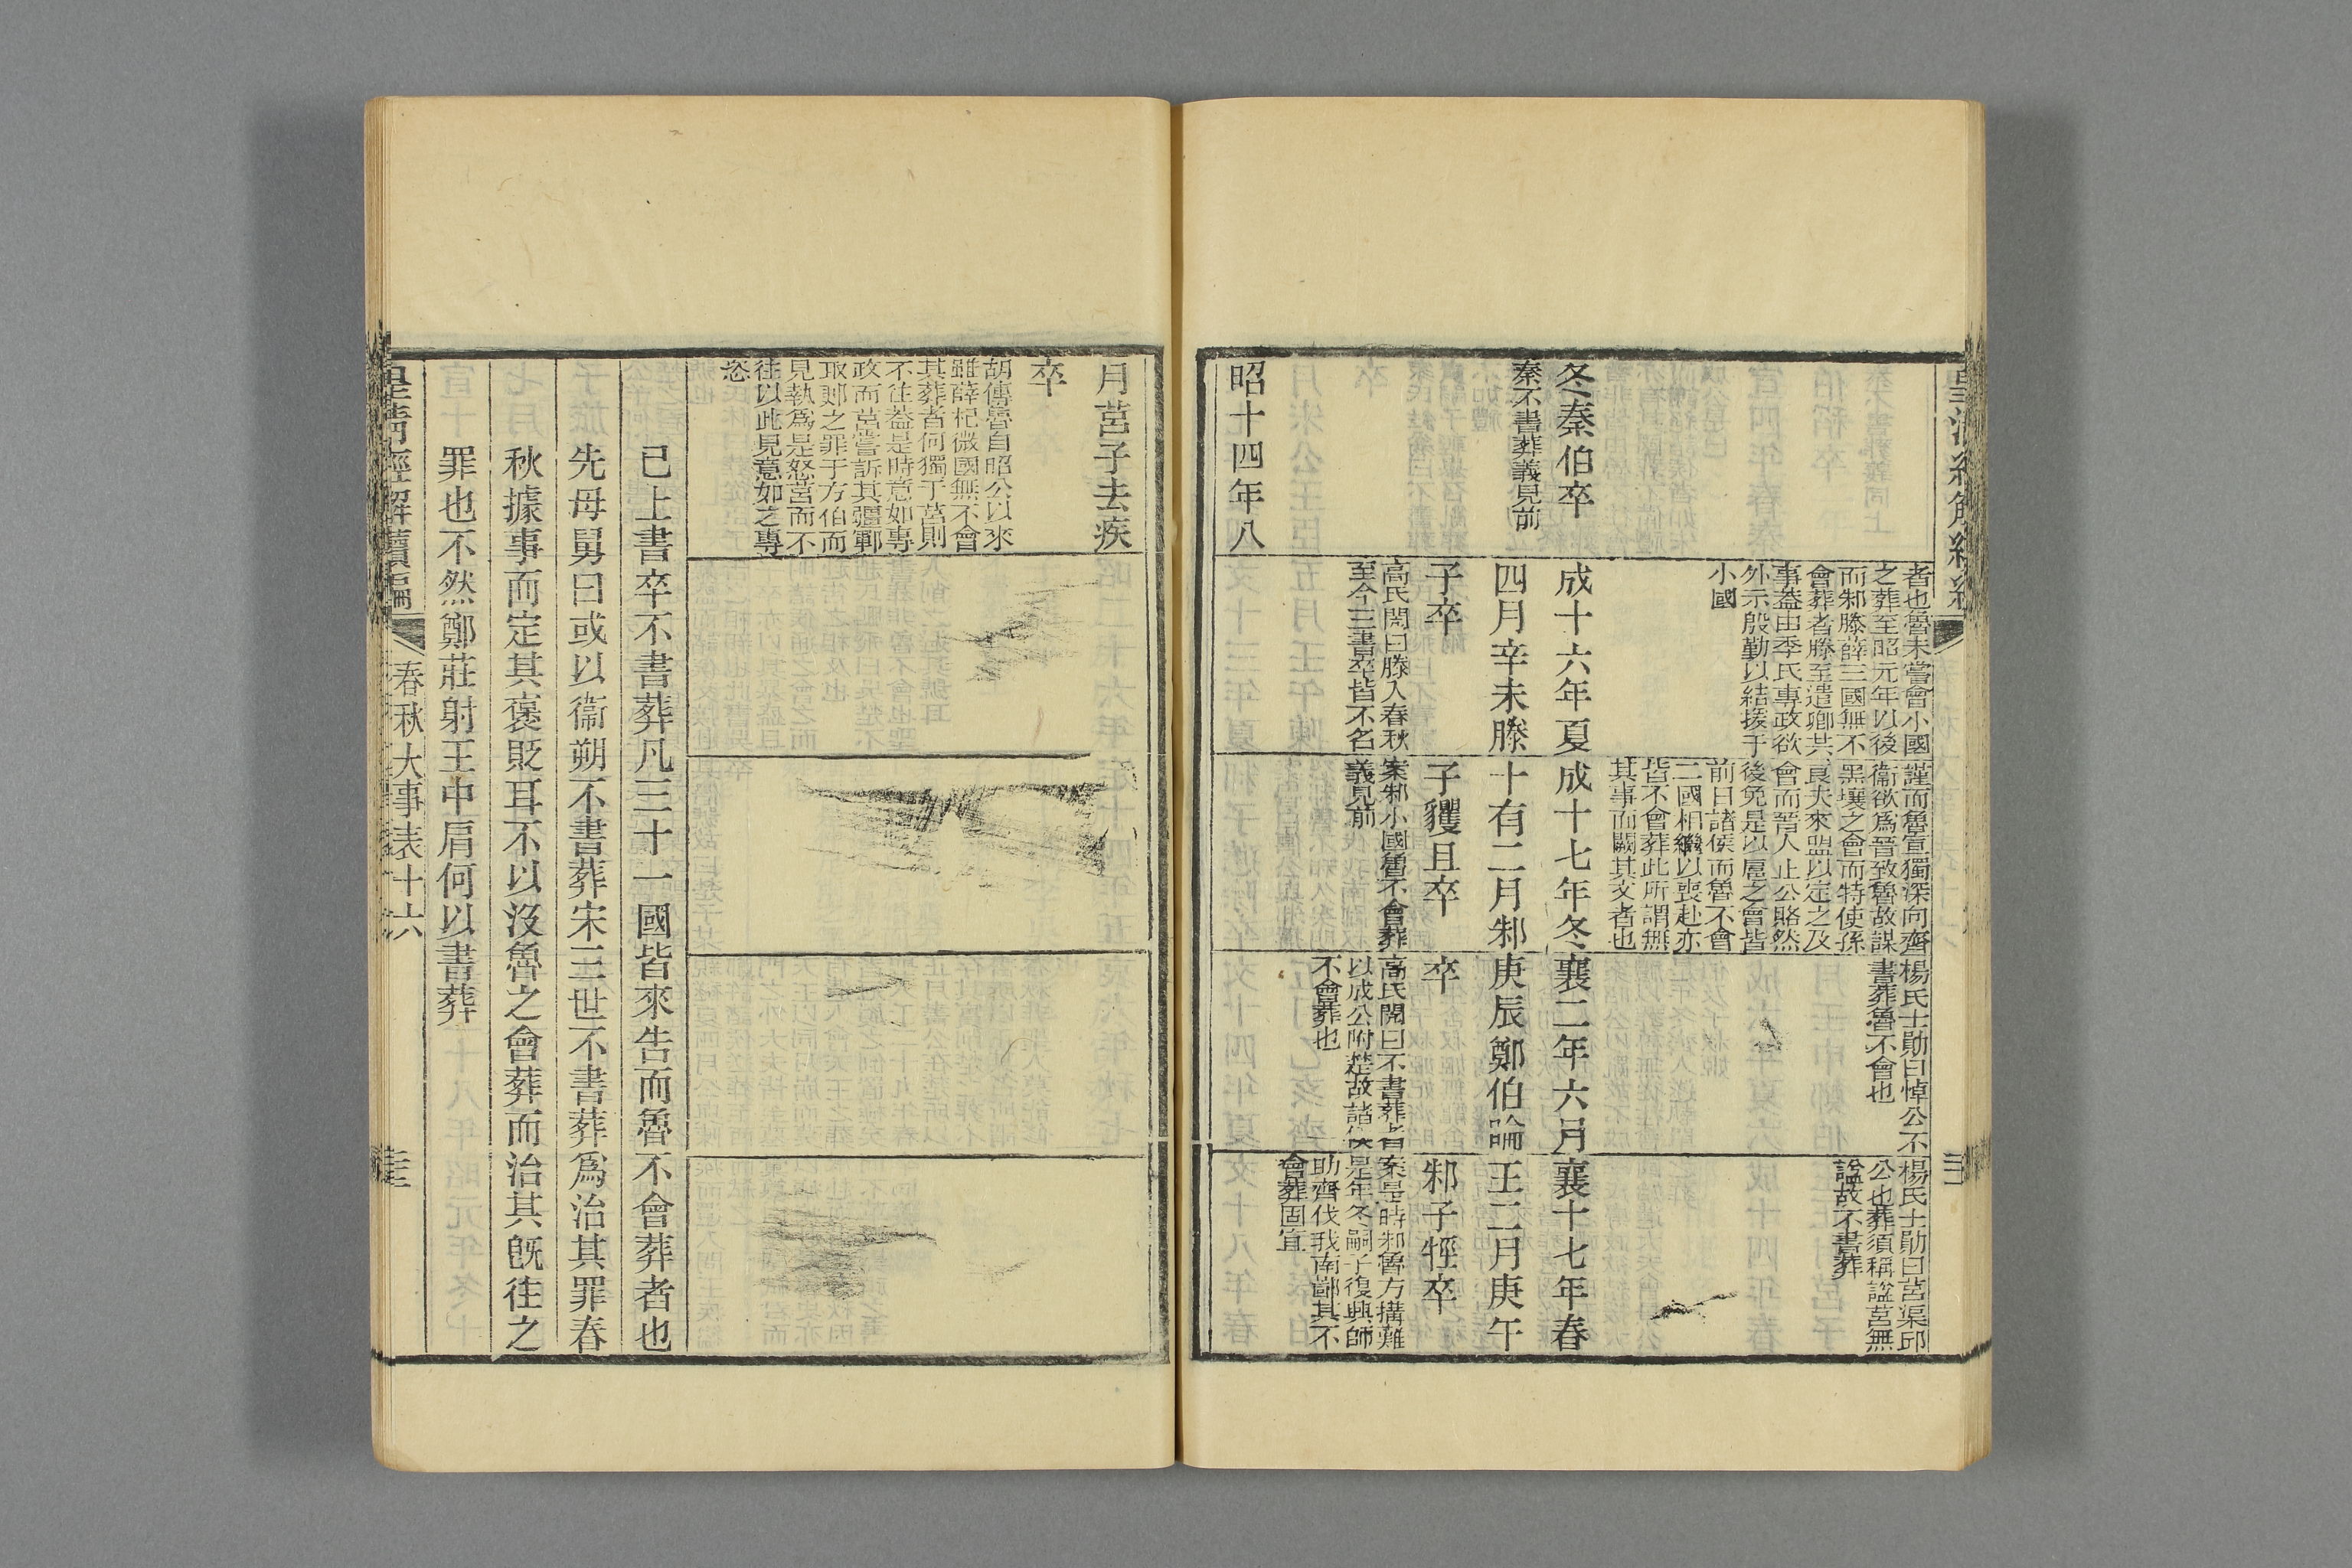 冬秦伯卒
秦不書葬義見前
昭十四年八
者也魯未嘗會小國
之葬至昭元年以後
而邾滕薛三國無不
會葬者滕至遣卿共
事葢由季氏專政欲
外示殷勤以結援于
小國
成十六年夏
四月辛未滕
子卒
高氏閌曰滕入春秋
至今三書卒皆不名
謹而魯宣獨深向齊
衞欲爲晉致魯故謀
黑壤之會而特使孫
良夫來盟以定之及
會而晉人止公賂然
後免是以扈之會皆
前日諸侯而魯不會
二國相繼以喪赴亦
皆不會葬此所謂無
其事而闕其文者也
成十七年冬
十有二月邾
子貜且卒
案邾小國魯不會葬
義見前
楊氏士勛曰悼公不
書葬魯不會也
襄二年六月
庚辰鄭伯論
卒
高氏閌曰不書葬者
以成公附楚故諸侯
不會葬也
楊氏士勛曰莒渠邱
公也葬須稱諡莒無
諡故不書葬
襄十七年春
王二月庚午
邾子牼卒
案是時邾魯方搆難
是年冬嗣子復興師
助齊伐我南鄙其不
會葬固宜
月莒子去疾
卒
胡傳魯自昭公以來
雖薛杞微國無不會
其葬者何獨于莒則
不往葢是時意如專
政而莒嘗訴其疆鄆
取郠之罪于方伯而
見執爲是怒莒而不
往以此見意如之專
恣
已上書卒不書葬凡三十一國皆來告而魯不會葬者也
先母舅曰或以衞朔不書葬宋三世不書葬爲治其罪春
秋據事而定其褒貶耳不以沒魯之會葬而治其旣往之
罪也不然鄭莊射王中肩何以書葬
皇淸經解續編
春秋大事表十六